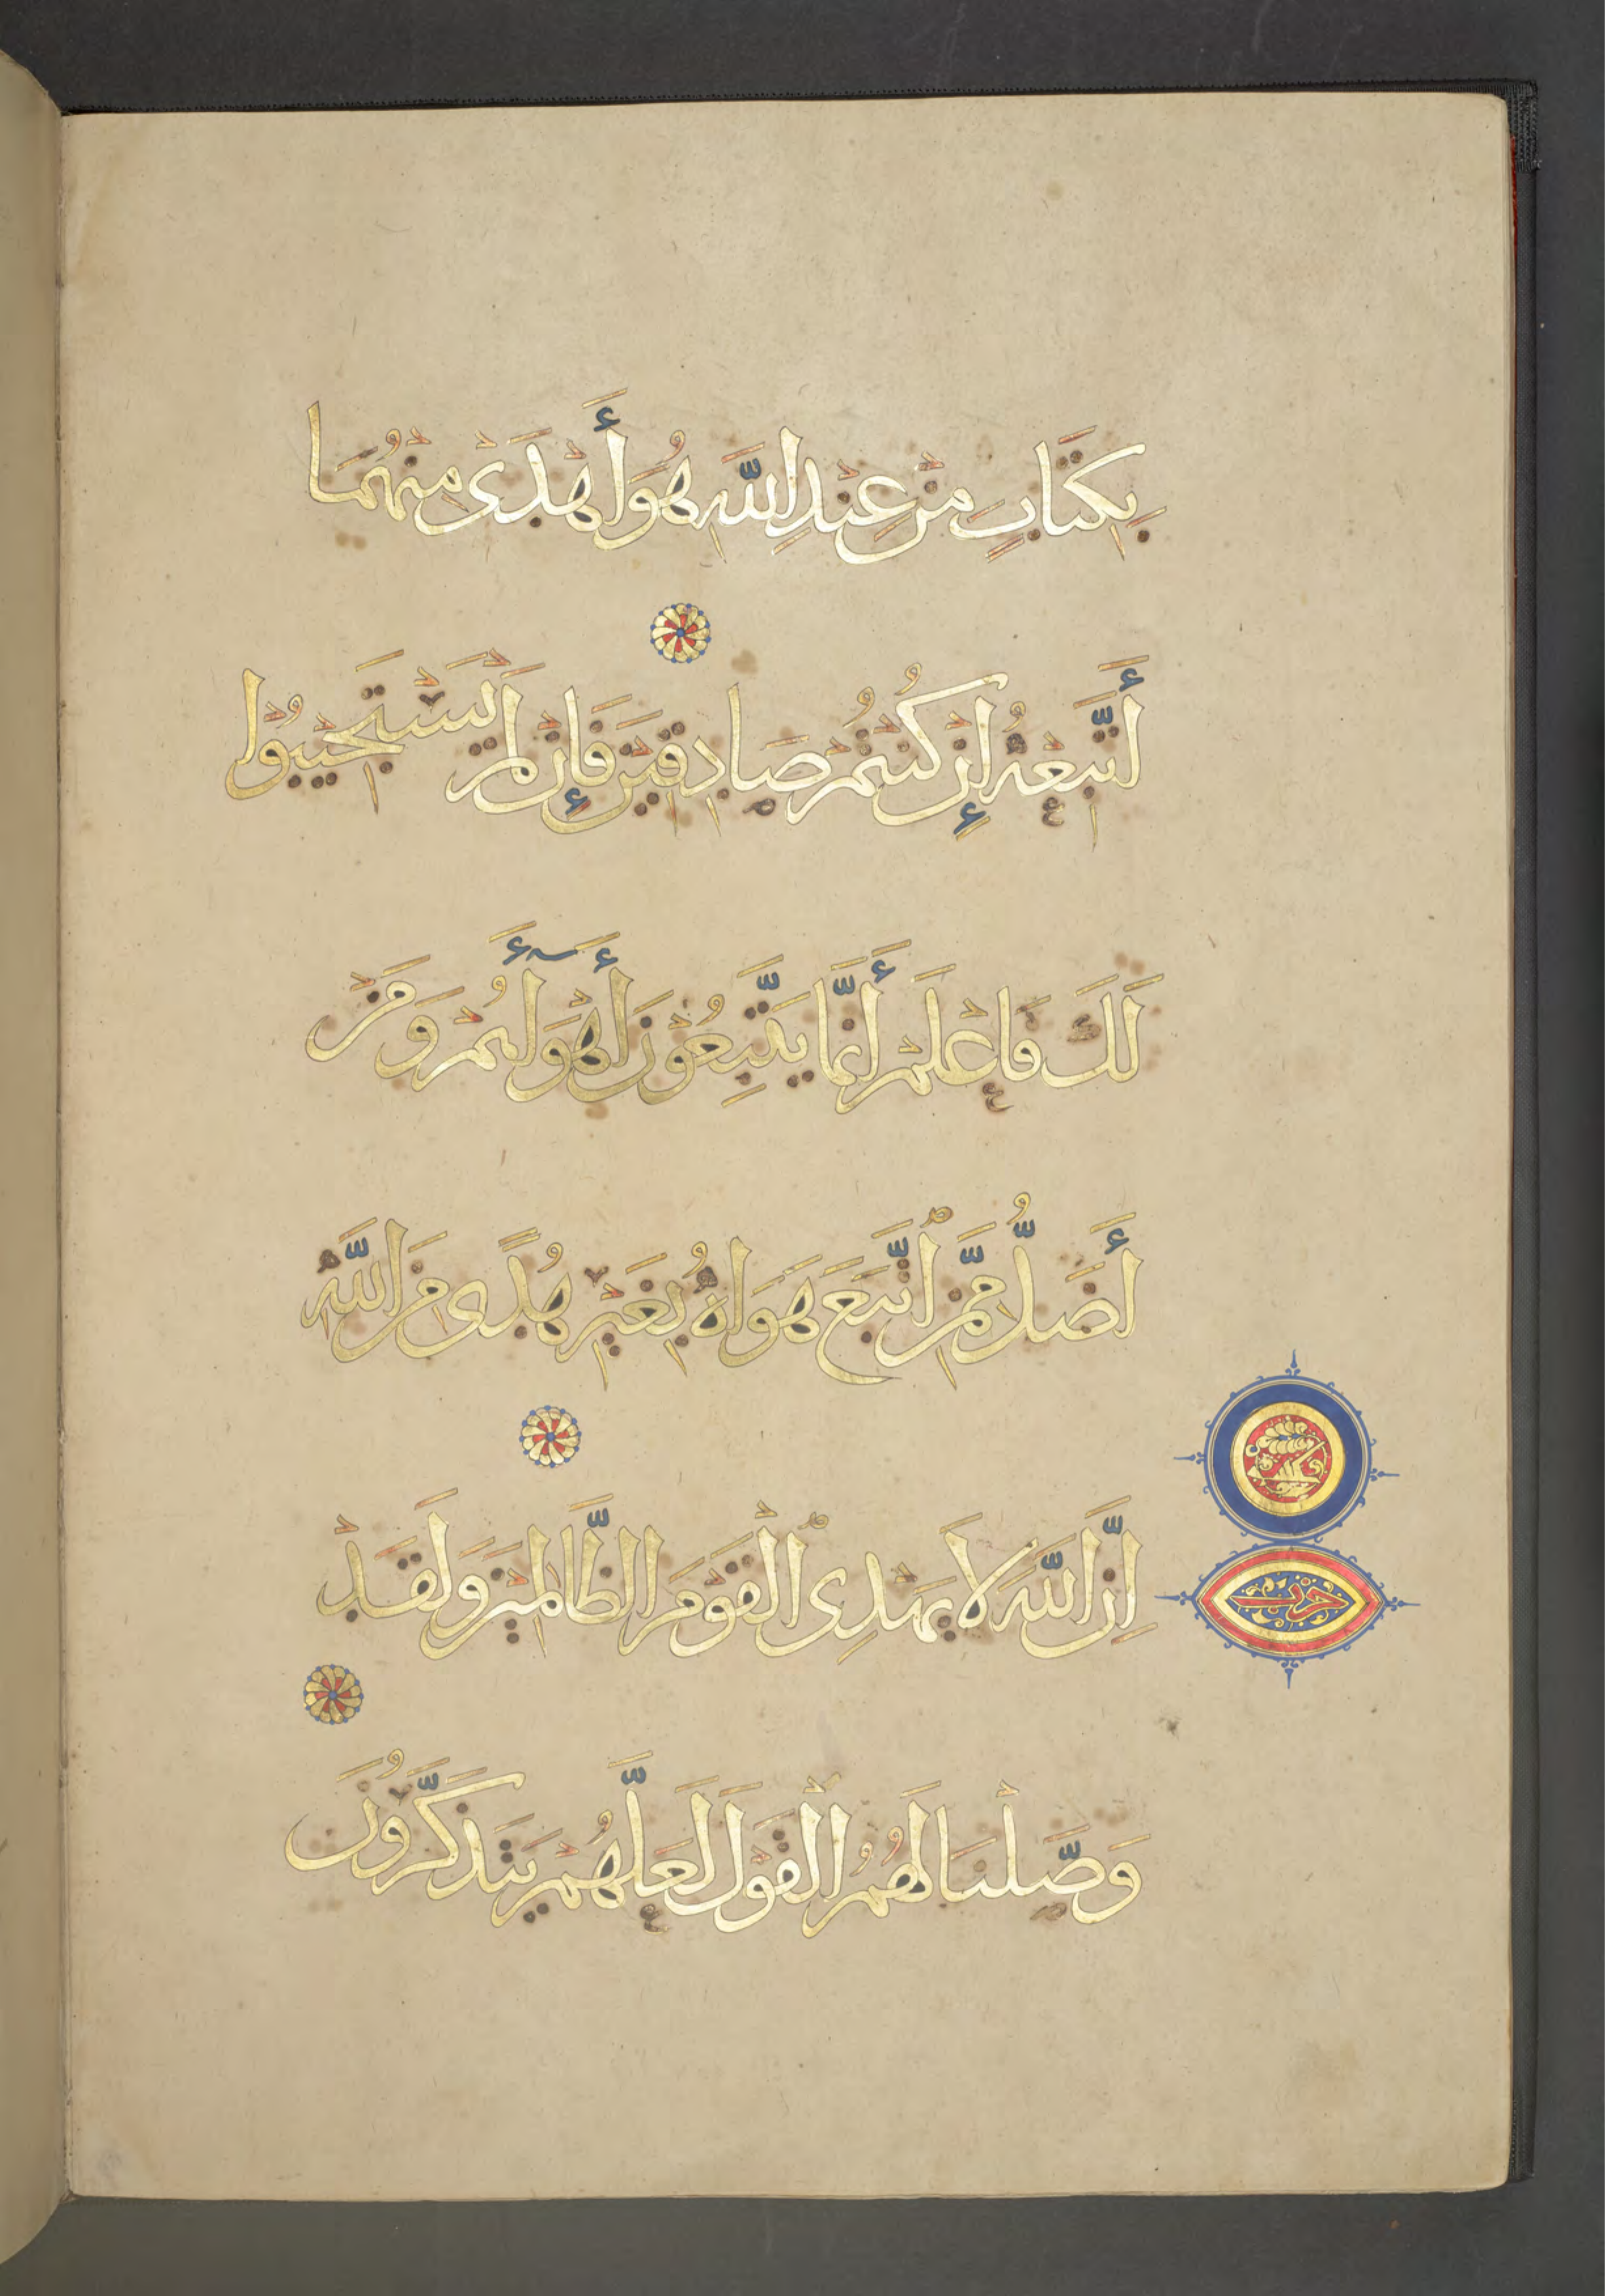 بِكِتَابٍ مِنْ عِنْدِ اللَّهِ هُوَ أَهْدَىٰ مِنْهُمَا
أَتَّبِعْهُ إِنْ كُنْتُمْ صَادِقِينَ فَإِنْ لَمْ يَسْتَجِيبُوا
لَكَ فَاعْلَمْ أَنَّمَا يَتَّبِعُونَ أَهْوَآءَهُمْ وَمَنْ
أَضَلُّ مِمَّنِ اتَّبَعَ هَوَاهُ بِغَيْرِ هُدًى مِنَ اللَّهِ
إِنَّ اللَّهَ لَا يَهْدِي الْقَوْمَ الظَّالِمِينَ وَلَقَدْ
حزب
وَصَّلْنَا لَهُمُ الْقَوْلَ لَعَلَّهُمْ يَتَذَكَّرُونَ